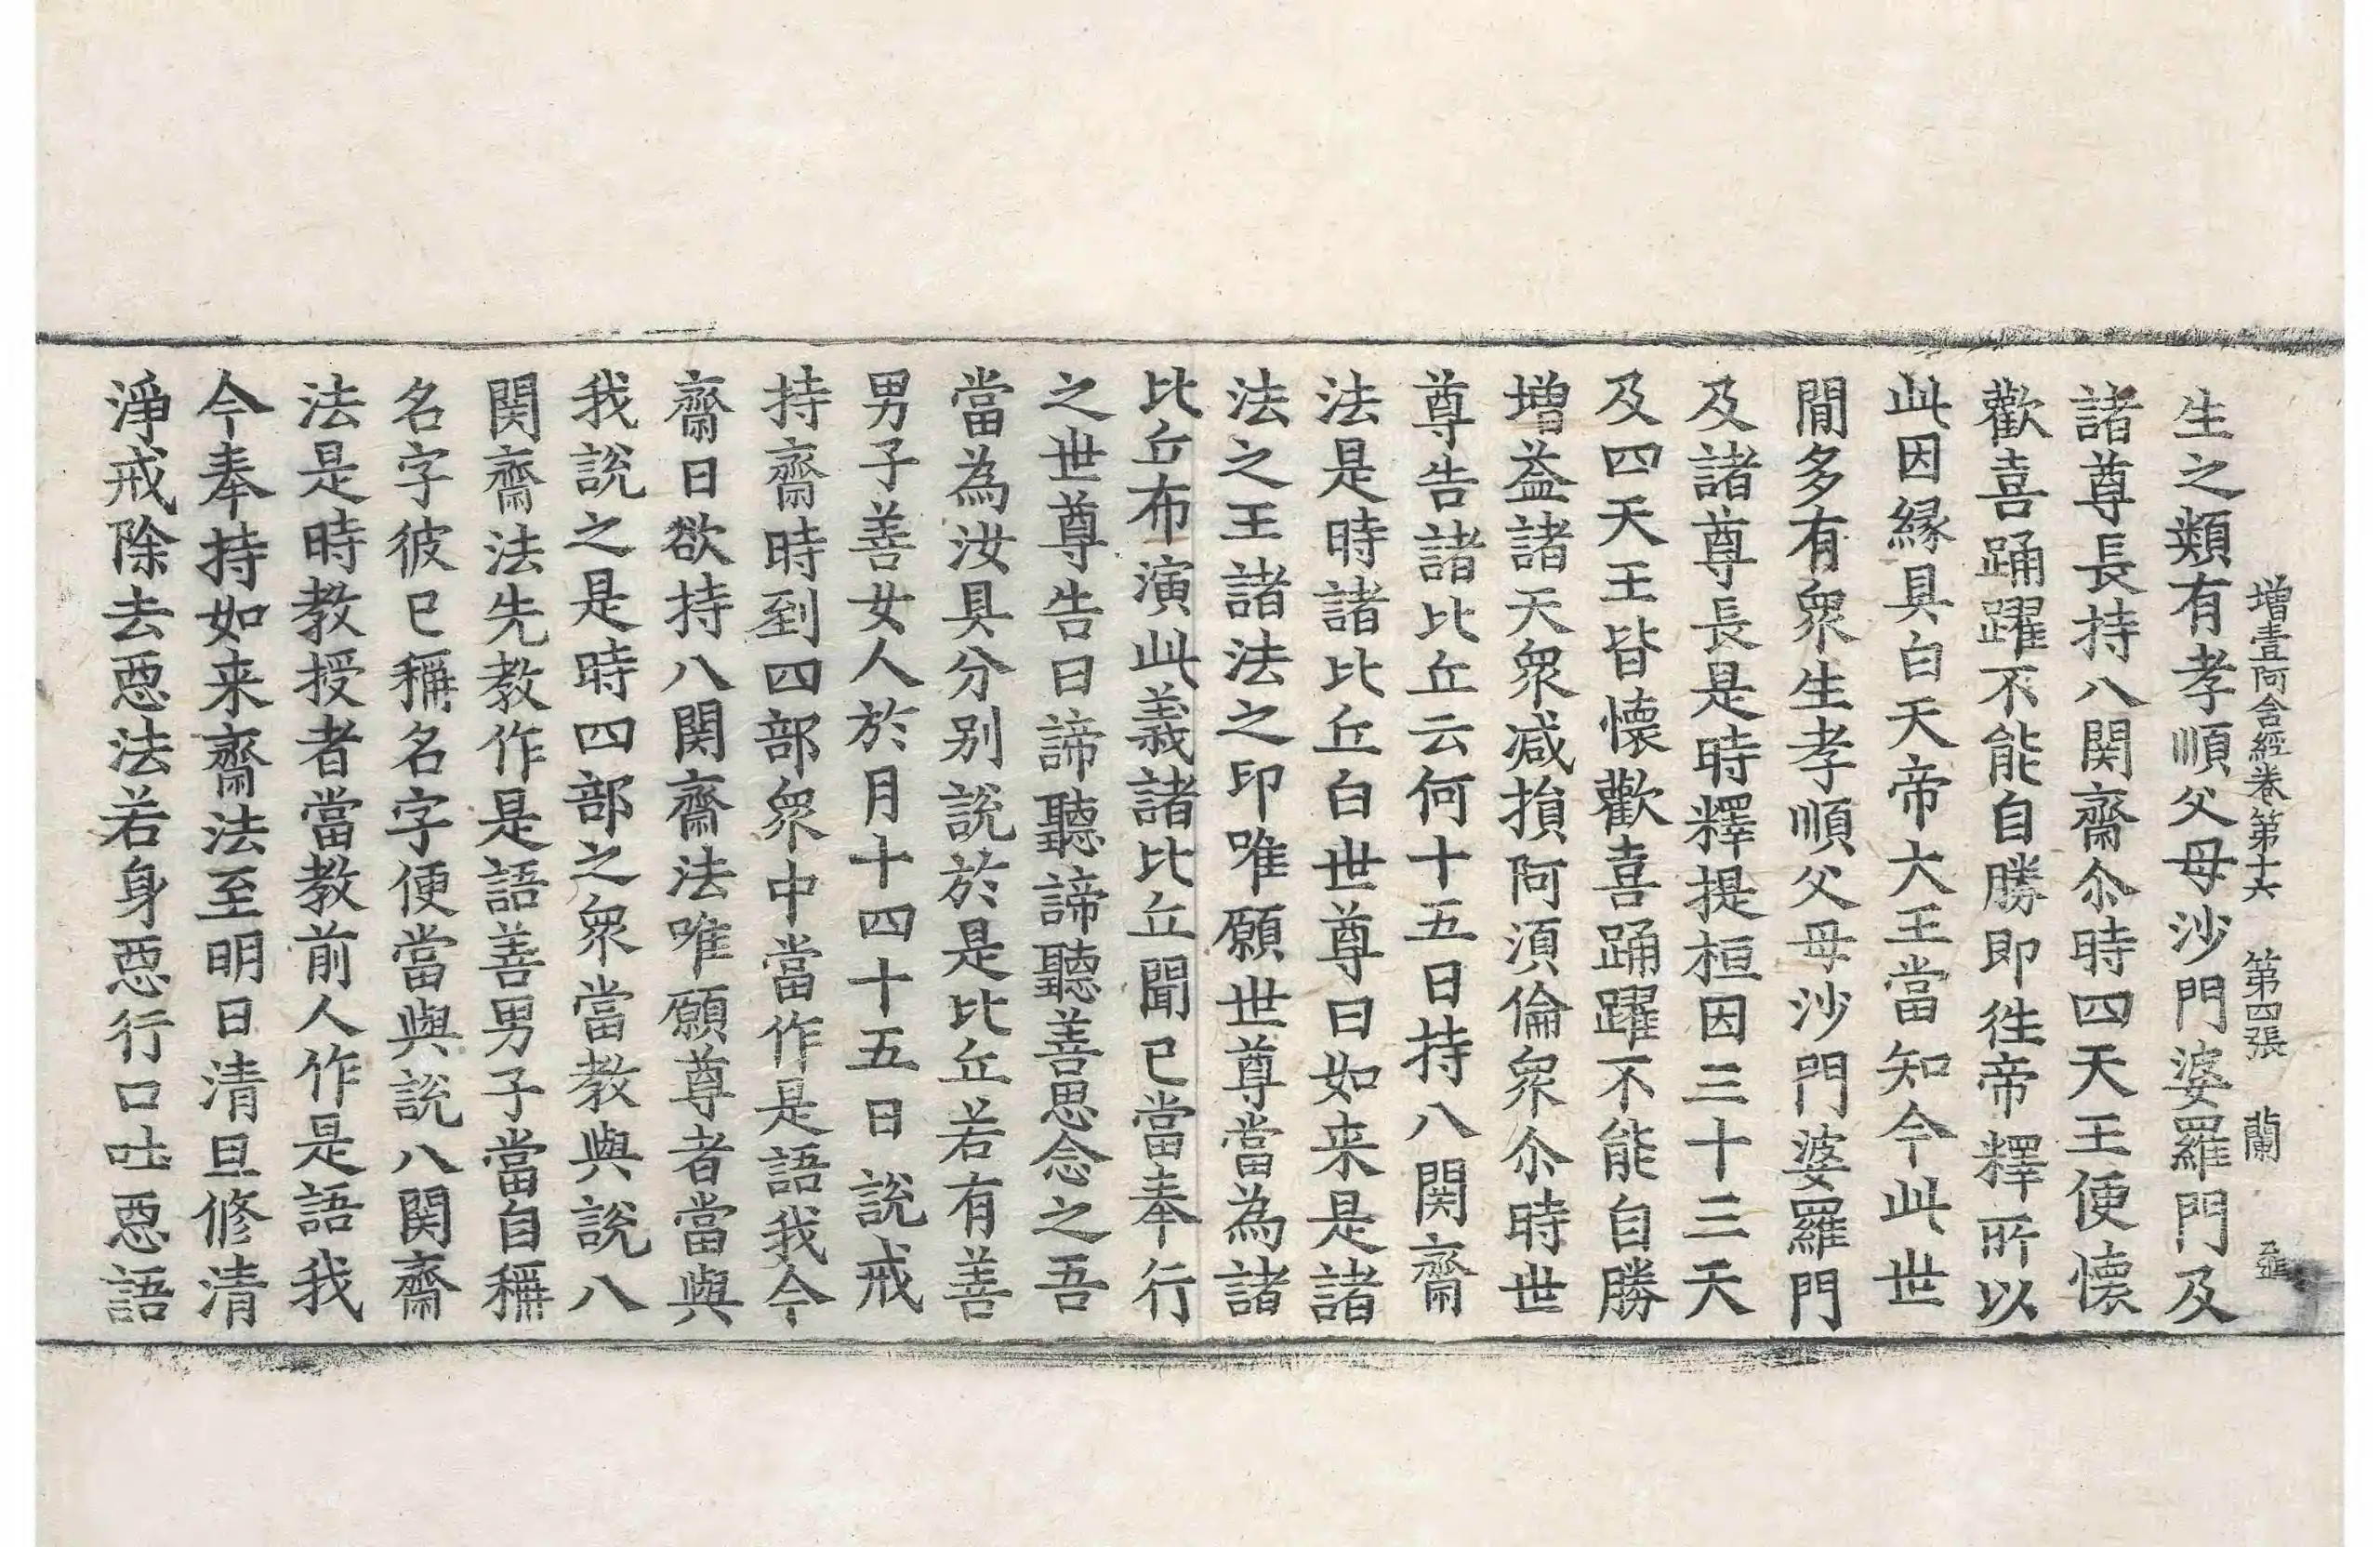 增壹阿含經卷第十六 第四張 蘭
生之類有孝順父母沙門婆羅門及
諸尊長持八関齋尒時四天王便懷
歡喜踊躍不能自勝即徃帝釋所以
此因縁具白天帝大王當知今此世
閒多有衆生孝順父母沙門婆羅門
及諸尊長是時釋提桓因三十三天
及四天王皆懷歡喜踊躍不能自勝
增益諸天衆减損阿須倫衆尒時世
尊告諸比丘云何十五日持八関齋
法是時諸比丘白世尊曰如来是諸
法之王諸法之印唯願世尊當為諸
比丘布演此義諸比丘聞已當奉行
之世尊告曰諦聽諦聽善思念之吾
當為汝具分別說於是比丘若有善
男子善女人於月十四十五日說戒
持齋時到四部衆中當作是語我今
齋日欲持八関齋法唯願尊者當與
我說之是時四部之衆當教與說八
関齋法先教作是語善男子當自稱
名字彼已稱名字便當與說八関齋
法是時教授者當教前人作是語我
今奉持如来齋法至明日清旦修清
淨戒除去惡法若身惡行口吐惡語